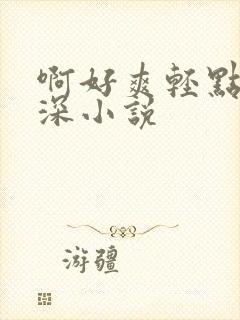 啊好爽輕點
深小說
游疆